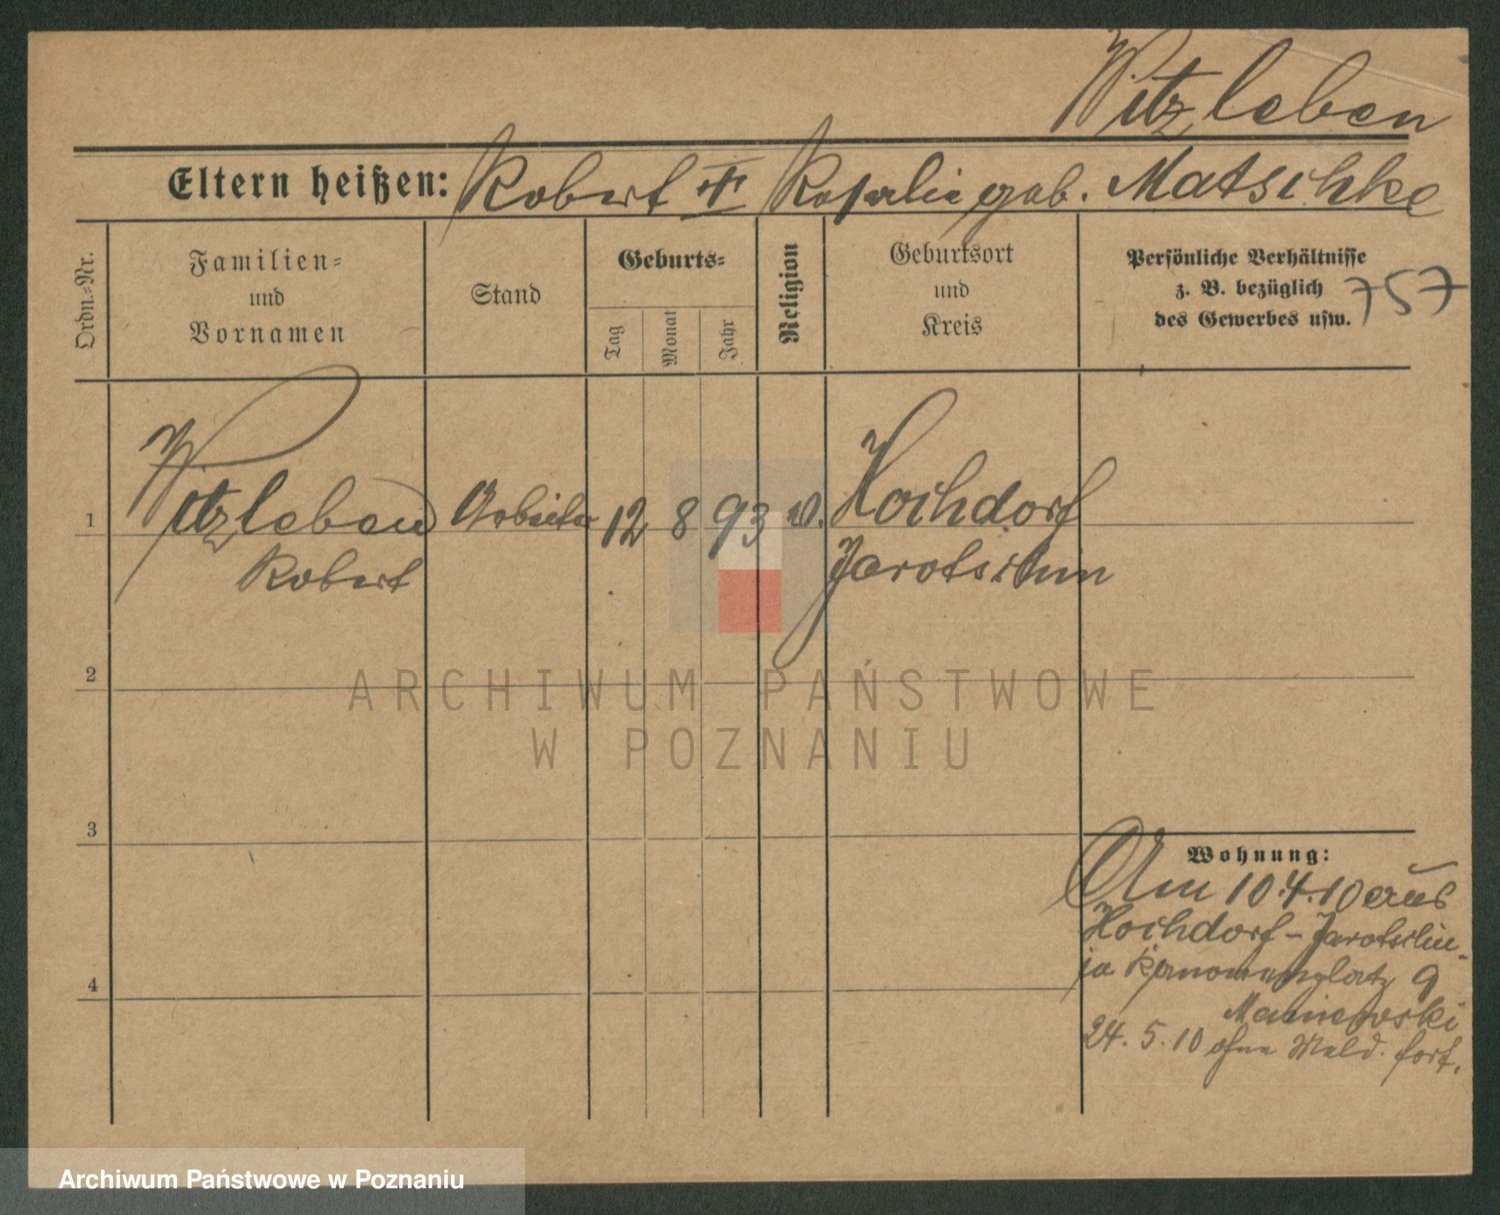 Witzleben
Eltern heißen: Robert † Rosalie geb. Matschke
Ordn.-Nr.
Familien-
und
Vornamen
Stand
Geburts-
Tag
Monat
Jahr
Religion
Geburtsort
und
Kreis
Persönliche Verhältnisse
z. B. bezüglich
des Gewerbes usw.
757
1
Witzleben
Robert
Arbeiter
12
8
93
Hochdorf
Jarotschin
2
ARCHIWUM PAŃSTWOWE
W POZNANIU
3
4
Wohnung:
Am 10.4.10 aus
Hochdorf - Jarotschin
Kanonenplatz 9
24. 5. 10 ohne Meld. fort.
Archiwum Państwowe w Poznaniu